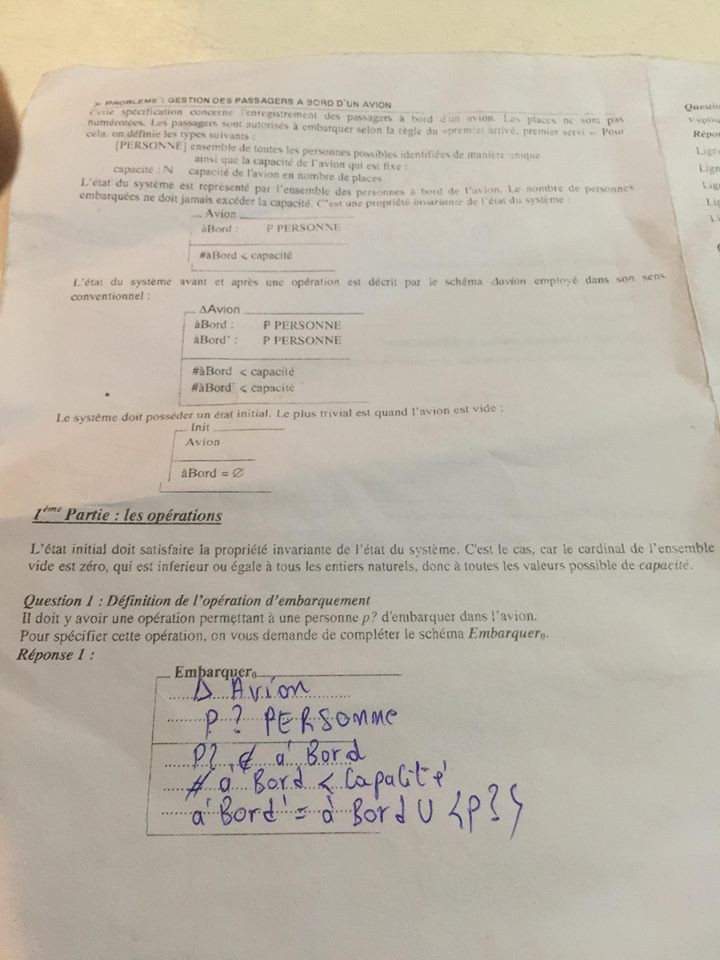 > PROBLEME : GESTION DES PASSAGERS A BORD D'UN AVION
Cette spécification concerne l'enregistrement des passagers à bord d'un avion. Les places ne sont pas
numérotées. Les passagers sont autorisés à embarquer selon la règle du «premier arrivé, premier servi ». Pour
cela, on définie les types suivants :
[PERSONNE] ensemble de toutes les personnes possibles identifiées de manière unique
ainsi que la capacité de l'avion qui est fixe :
capacité : ℕ capacité de l'avion en nombre de places
L'état du système est représenté par l'ensemble des personnes à bord de l'avion. Le nombre de personnes
embarquées ne doit jamais excéder la capacité. C'est une propriété invariante de l'état du système :
Avion
àBord : P PERSONNE
#àBord ⩽ capacité
L'état du système avant et après une opération est décrit par le schéma Δavion employé dans son sens
conventionnel :
ΔAvion
àBord : P PERSONNE
àBord' : P PERSONNE
#àBord ⩽ capacité
#àBord' ⩽ capacité
Le système doit posséder un état initial. Le plus trivial est quand l'avion est vide :
Init
Avion
àBord = ∅
1ème Partie : les opérations
L'état initial doit satisfaire la propriété invariante de l'état du système. C'est le cas, car le cardinal de l'ensemble
vide est zéro, qui est inferieur ou égale à tous les entiers naturels, donc à toutes les valeurs possible de capacité.
Question 1 : Définition de l'opération d'embarquement
Il doit y avoir une opération permettant à une personne p? d'embarquer dans l'avion.
Pour spécifier cette opération, on vous demande de compléter le schéma Embarquer₀.
Réponse 1 :
Embarquer₀
Δ Avion
P ? PERSONNE
P? ∉ à Bord
# à Bord < Capacité
à Bord' = à Bord ∪ {P?}
Questio
Répon
Lign
Lign
Lig
Li